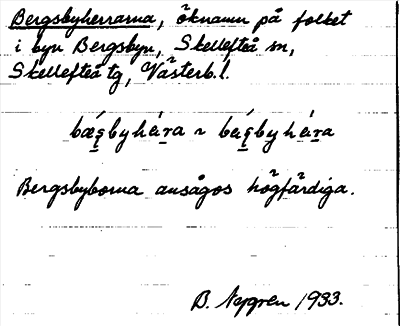 Bergsbyherrarna, öknamn på folket
i byn Bergsbyn, Skellefteå sn,
Skellefteå tg, Västerb. l.
bǽ̨s̱byhéṟa ~ bǽ̨s̱byhéṟa
Bergsbyborna ansågos högfärdiga.
B. Nygren 1933.